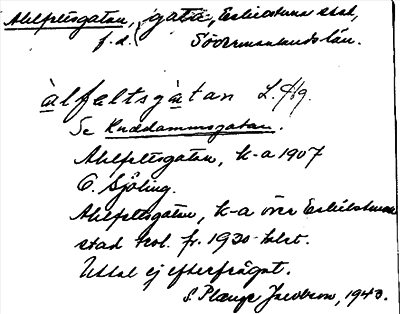 Ahlfeltsgatan, gata, Eskilstuna stad,
f.d. Södermanlands län.
àlfeltsgàtan L. Hg.
Se Kreddammsgatan.
Ahlfeltsgatan, k-a 1907
C. Sjöling.
Ahlfeltsgatan, k-a över Eskilstuna
stad fr. 1930-talet.
Uttal ej efterfrågat.
S. Plange Jacobson, 1943.